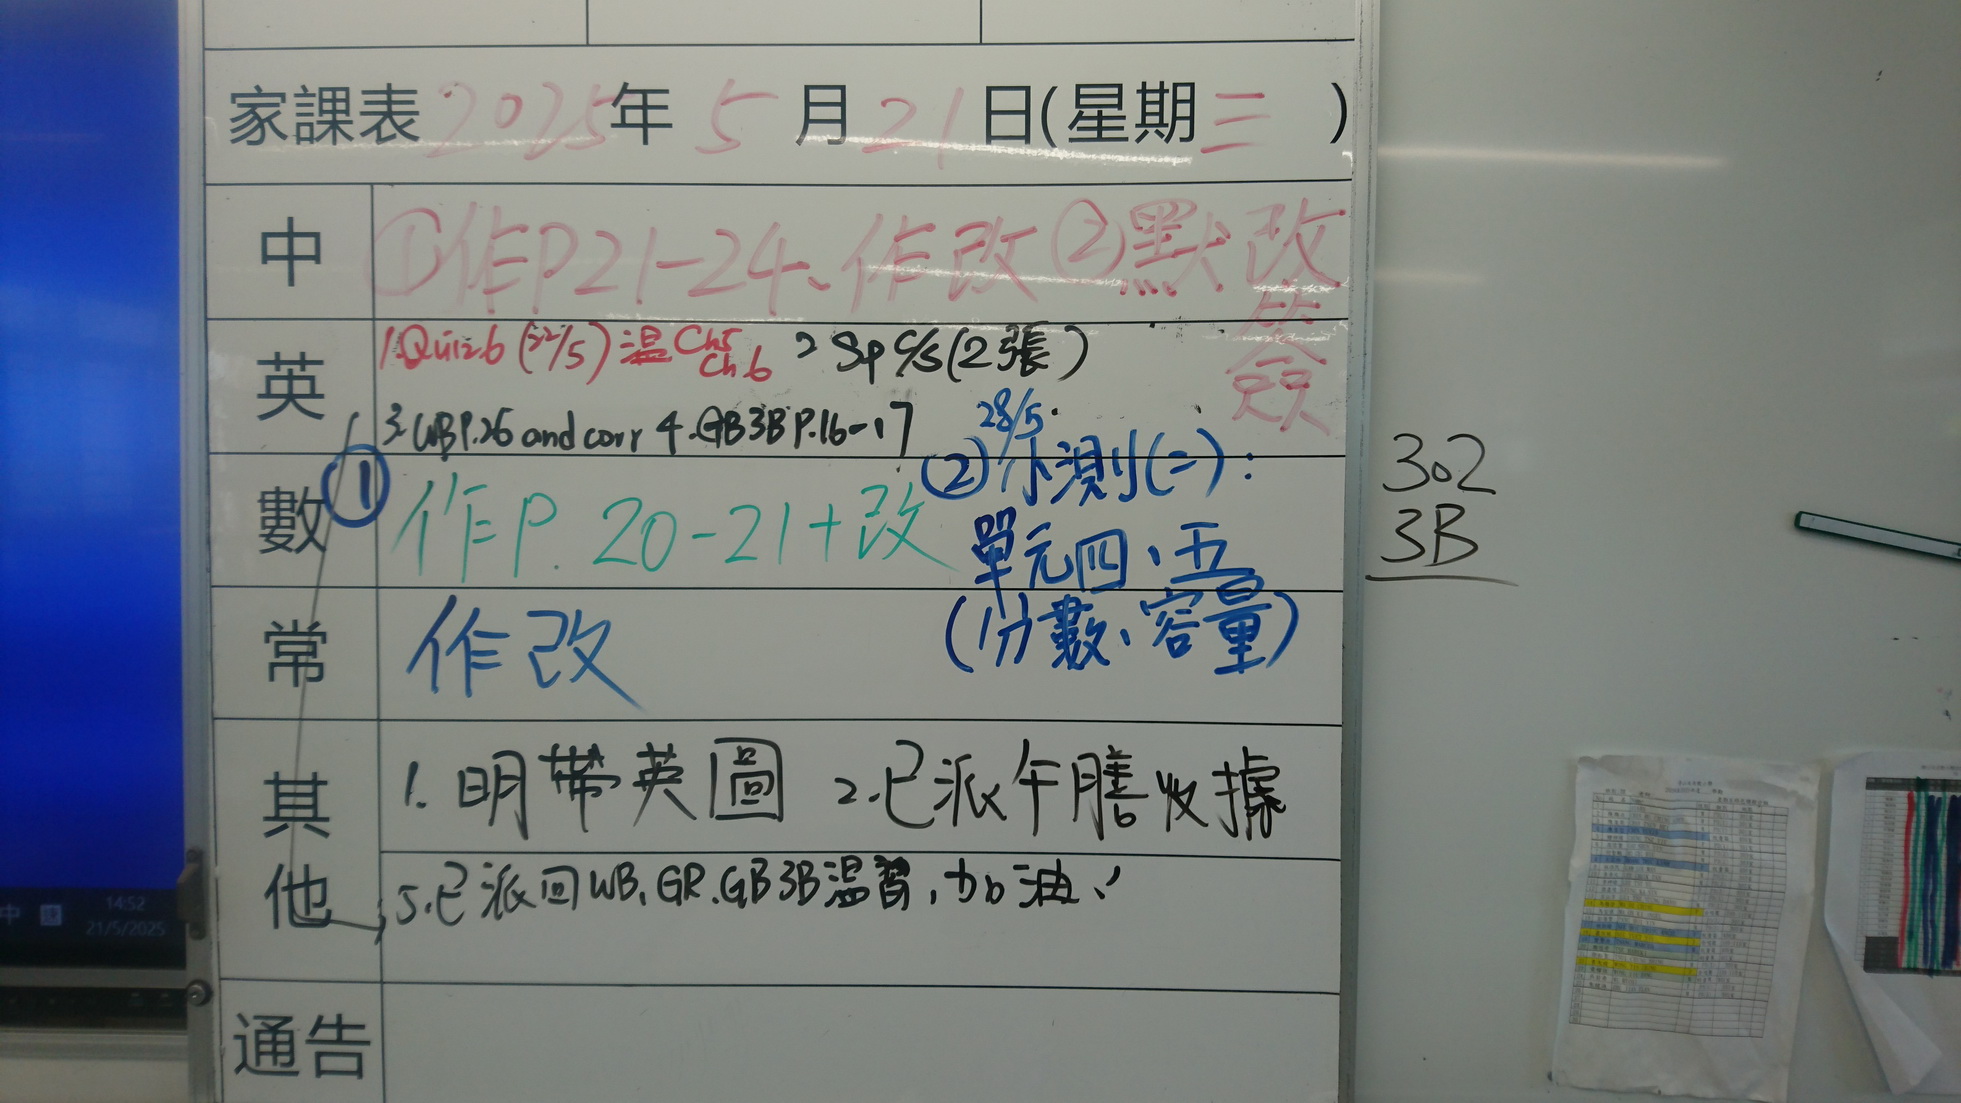 家課表 2025年 5月21日(星期三)
中
①作P21-24、作改 ②默改
簽
英
1.Quiz 6 (22/5) 温 Ch5
Ch.6
2 Sp c/s (2張)
3. WB P.26 and corr 4. GB3B P.16-17
數
① 作P. 20-21+改
28/5.
②小測(二):
單元四、五
(分數、容量)
常
作改
其他
1. 明帶英圖 2.已派午膳收據
3.已派回WB, GR, GB3B温習,加油!
通告
302
3B
14:52
21/5/2025
中